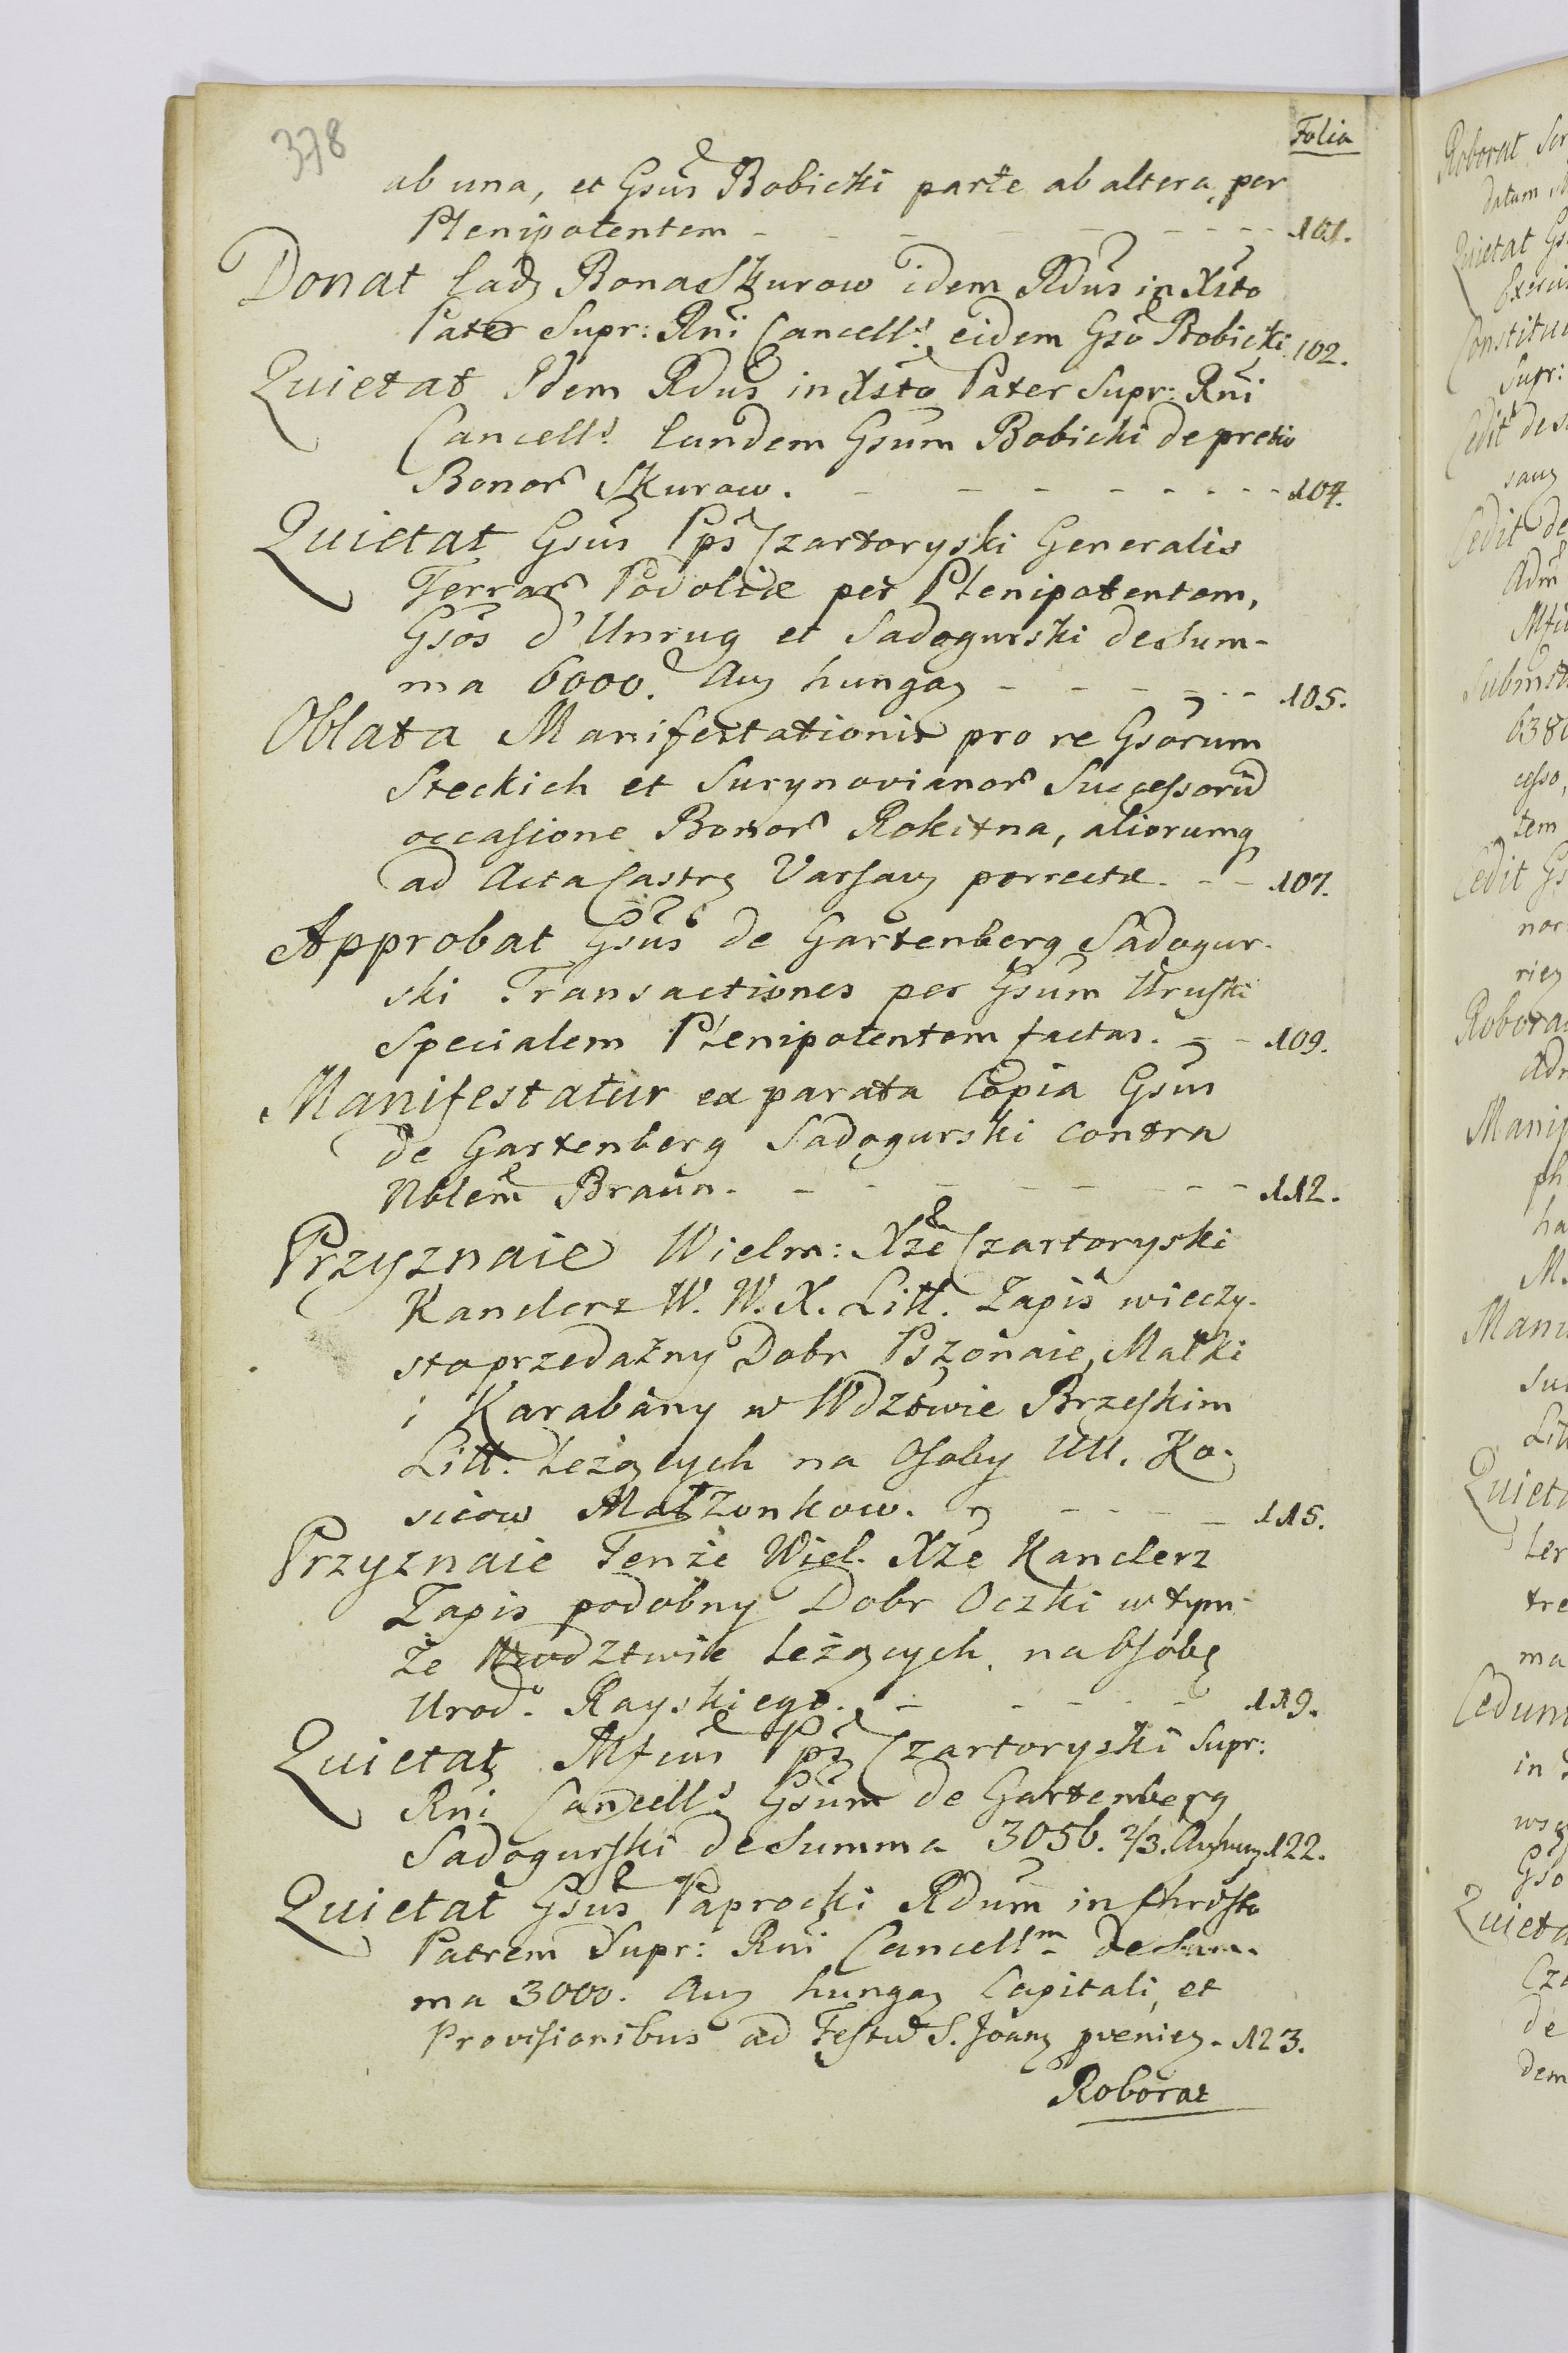 378
Folia
ab una, et Gsūs Bobicki parte ab altera, per
Plenipotentem - - - - - - - 101.
Donat eadꝫ Bona Skurow idem Rdūs in Xsto
Pater Supr: Rni Cancells eidem Gso Bobicki 102.
Quietat Idem Rdūs in Xsto Pater Supr: Rni
Cancells Eundem Gsum Bobicki de pretio
Bonor Skurow. - - - - - - - - 104.
Quietat Gsūs Pps Czartoryski Generalis
Terrar Podoliæ per Plenipotentem,
Gsos d'Unrug et Sadogurski de Sum-
ma 6000. Auꝫ hungaꝫ - - - - - - 105.
Oblata Manifestationis pro re Gsorum
Steckich et Surynovianor Successorū
occasione Bonor Rokitna, aliorumq
ad Acta Castrꝫ Varsavꝫ porrectæ. - - 107.
Approbat Gsūs de Gartenberg Sadogur-
ski Transactiones per Gsum Uruski
Specialem Plenipotentem factas. - - 109.
Manifestatur ex parata Copia Gsūs
de Gartenberg Sadogurski contra
Nblem Braun. - - - - - - - 112.
Przyznaie Wielm: Xże Czartoryski
Kanclerz W. W. X. Litt. Zapis wieczy-
stoprzedażny Dobr Pszonaie, Małki
i Karabany w Wdztwie Brzeskim
Litt. leżących na Osoby UU. Ko-
sicow Małżonkow. - - - - - 115.
Przyznaie Tenże Wiel. Xże Kanclerz
Zapis podobny Dobr Oczki w tym-
że Wwodztwie leżących, na Osobę
Urod. Rayskiego. - - - - - 119.
Quietat Mfcus Pps Czartoryski Supr:
Rni Cancells Gsum de Gartenberg
Sadogurski de Summa 3056. 2/3. Auꝫ hungꝫ 122.
Quietat Gsūs Paprocki Rdum in Christo
Patrem Supr: Rni Cancellm de Sum-
ma 3000. Auꝫ hungaꝫ Capitali, et
Provisionibus ad Festū S. Joanꝫ pvenieꝫ - 123.
Roborat